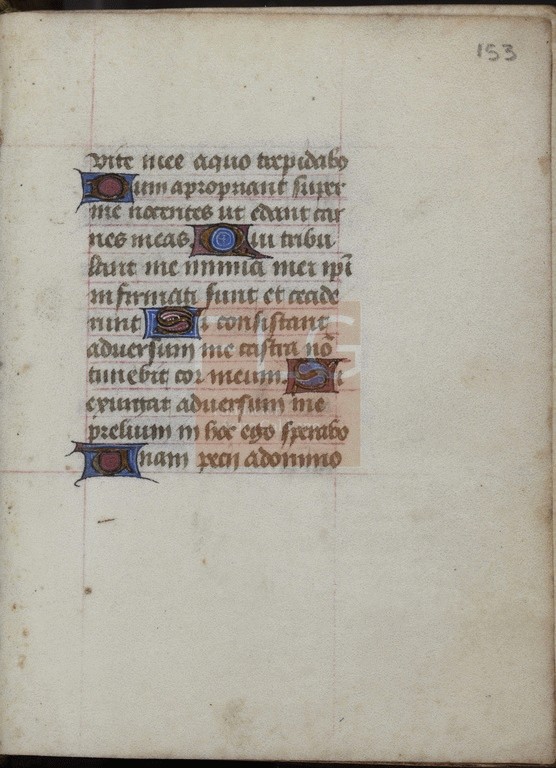 153
vite mee aquo trepidabo
Dum apropriant super
me nocentes ut edant car
nes meas Qui tribu
lant me inimici mei ipi
infirmati sunt et cecide
runt Si consistant
adversum me castra nō
timebit cor meum Si
exurgat adversum me
prelium in hoc ego sperabo
Unam pecii adomino